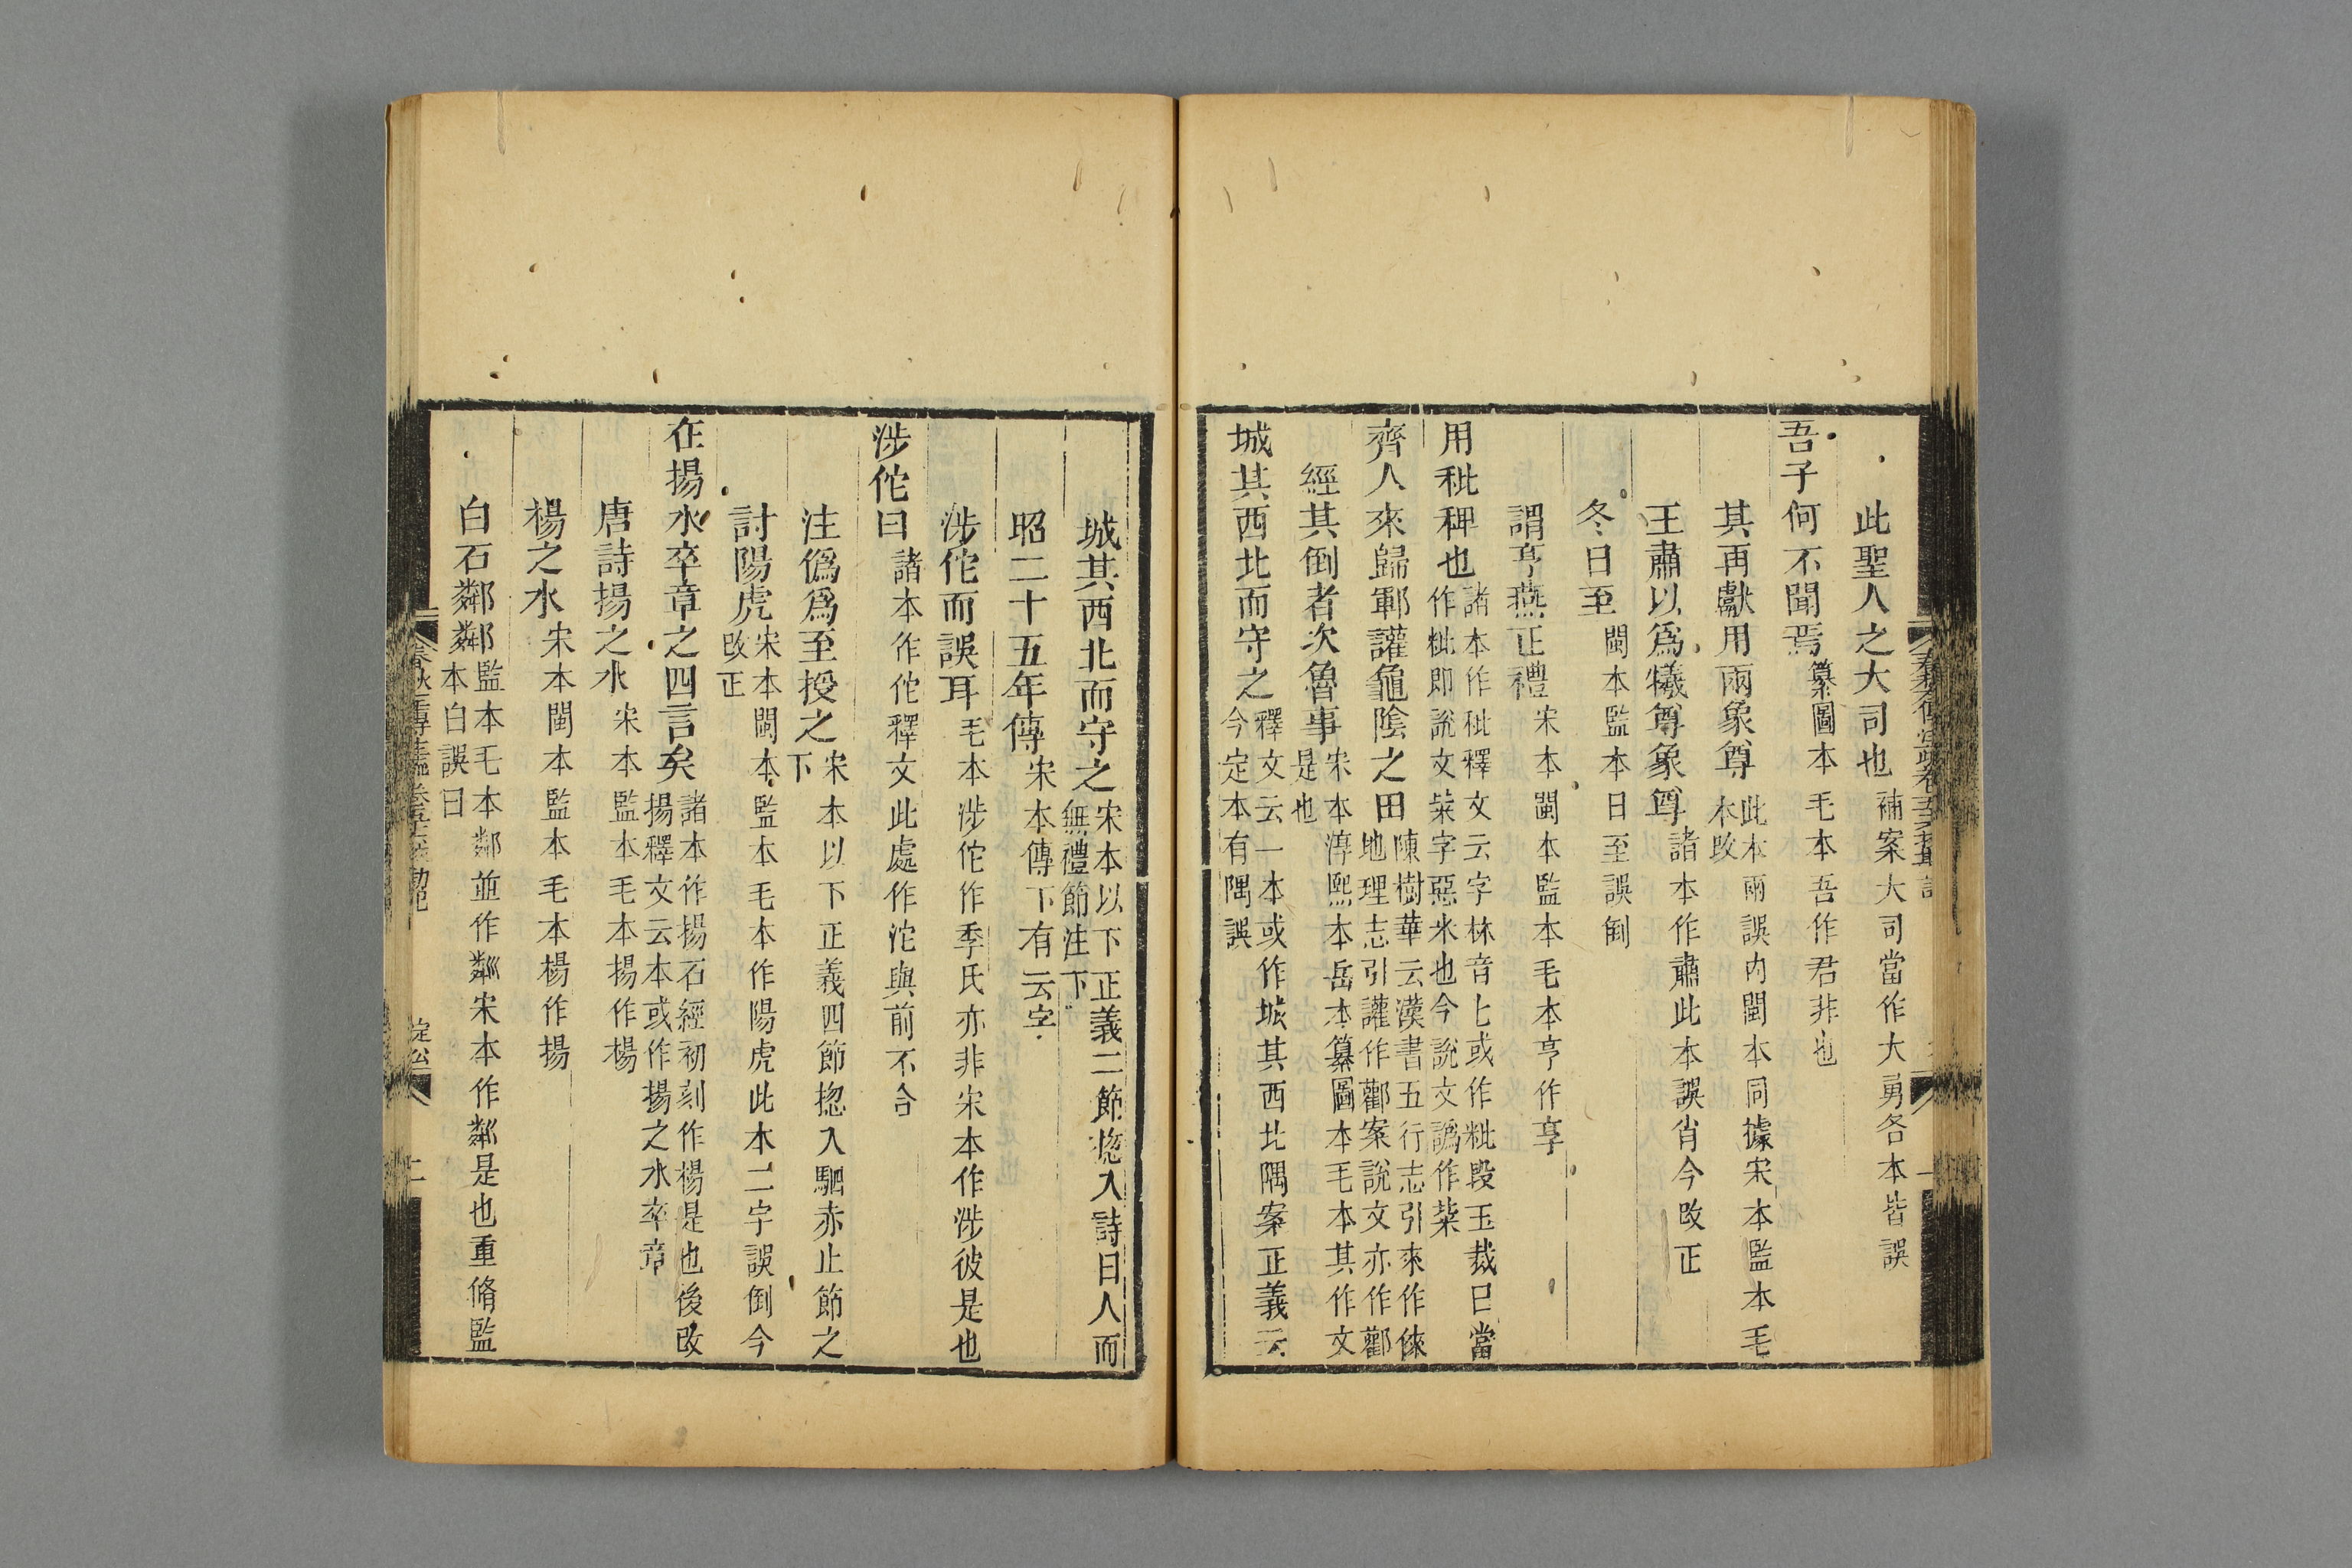 此聖人之大司也補案大司當作大勇各本皆誤
吾子何不聞焉纂圖本毛本吾作君非也
其再獻用兩象尊此本兩誤內閩本同據宋本監本毛本改
王肅以爲犧尊象尊諸本作肅此本誤肖今改正
冬日至閩本監本日至誤倒
謂亨燕正禮宋本閩本監本毛本亨作享
用秕稗也諸本作秕釋文云字林音匕或作粃段玉裁曰當作粃即說文䊧字惡米也今說文譌作䉾
齊人來歸鄆讙龜陰之田陳樹華云漢書五行志引來作倈地理志引讙作酄案說文亦作酄
經其倒者次魯事宋本淳熙本岳本纂圖本毛本其作文是也
城其西北而守之釋文云一本或作城其西北隅案正義云今定本有隅誤
城其西北而守之宋本以下正義二節揔入詩曰人而無禮節注下
昭二十五年傳宋本傳下有云字
涉佗而誤耳毛本涉佗作季氏亦非宋本作涉彼是也
涉佗曰諸本作佗釋文此處作沱與前不合
注僞爲至授之宋本以下正義四節揔入駟赤止節之下
討陽虎宋本閩本監本毛本作陽虎此本二字誤倒今改正
在揚水卒章之四言矣諸本作揚石經初刻作楊是也後改揚釋文云本或作揚之水卒章
唐詩揚之水宋本監本毛本揚作楊
楊之水宋本閩本監本毛本楊作揚
白石鄰鄰監本毛本鄰並作粼宋本作鄰是也重脩監本白誤曰